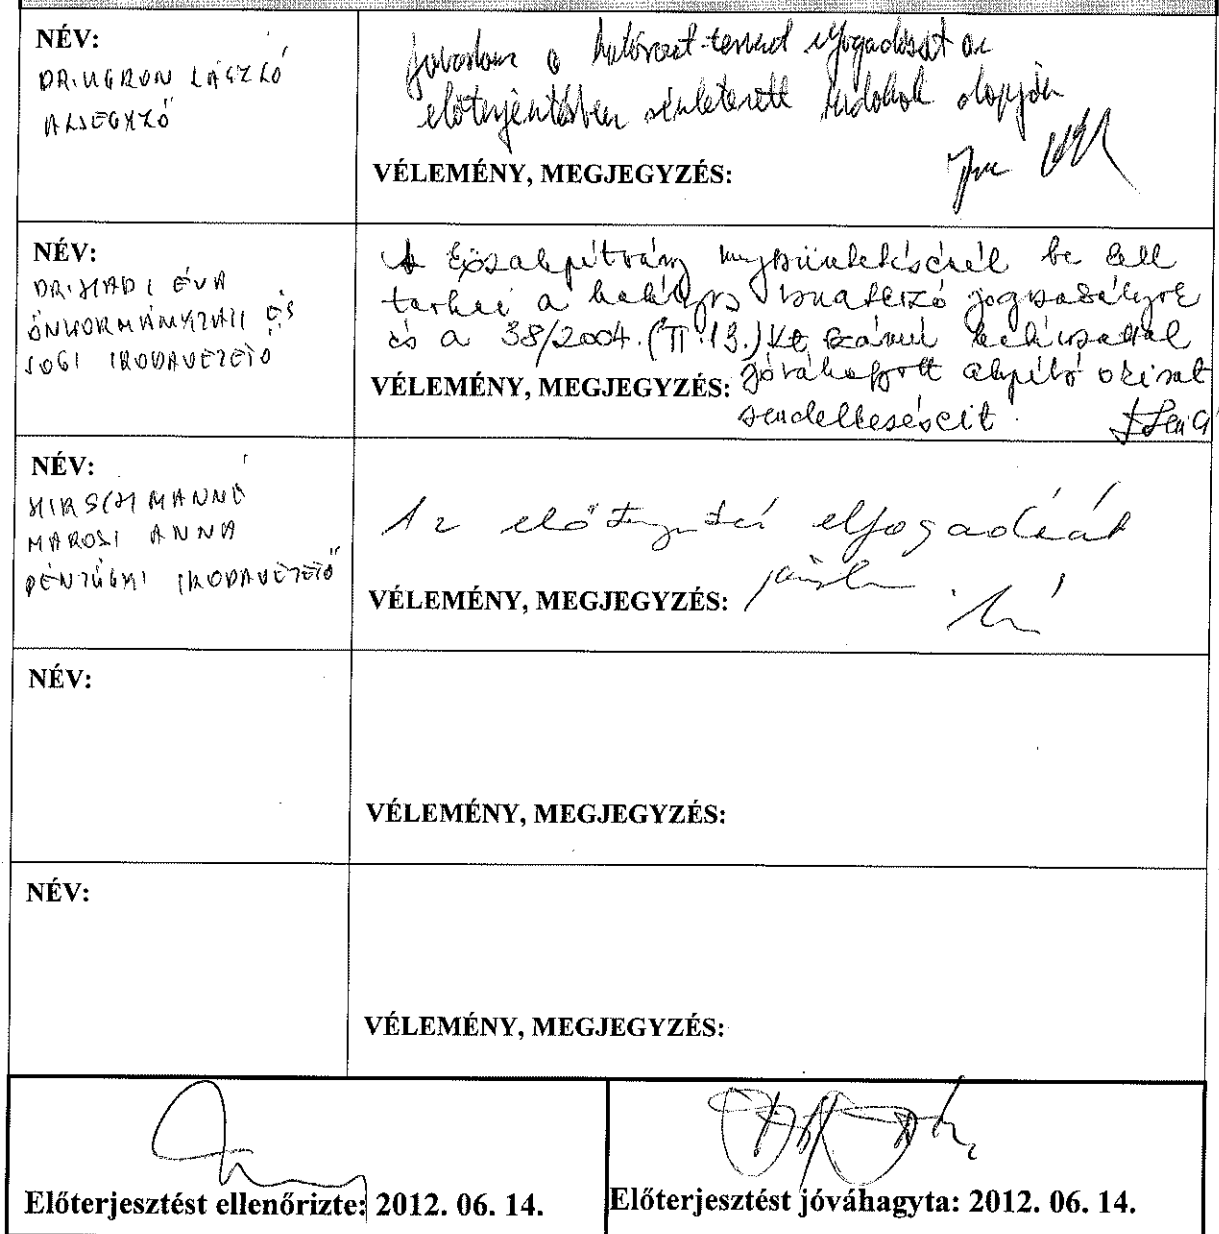 NÉV:
DR. UGRON LÁSZLÓ
ALJEGYZŐ
Javaslom a határozat-tervezet elfogadását az
előterjesztésben részletezett indokok alapján
VÉLEMÉNY, MEGJEGYZÉS:
NÉV:
DR. HADI ÉVA
ÖNKORMÁNYZATI ÉS
JOGI IRODAVEZETŐ
A Közalapítvány megszüntetésénél be kell
tartani a hatályos vonatkozó jogszabályok
és a 38/2004. (II. 13.) Kt. számú határozattal
VÉLEMÉNY, MEGJEGYZÉS: jóváhagyott alapító okirat
rendelkezéseit.
NÉV:
HIRSCHMANNÉ
MAROSI ANNA
PÉNZÜGYI IRODAVEZETŐ
Az előterjesztés elfogadását
VÉLEMÉNY, MEGJEGYZÉS:
NÉV:
VÉLEMÉNY, MEGJEGYZÉS:
NÉV:
VÉLEMÉNY, MEGJEGYZÉS:
Előterjesztést ellenőrizte: 2012. 06. 14.
Előterjesztést jóváhagyta: 2012. 06. 14.